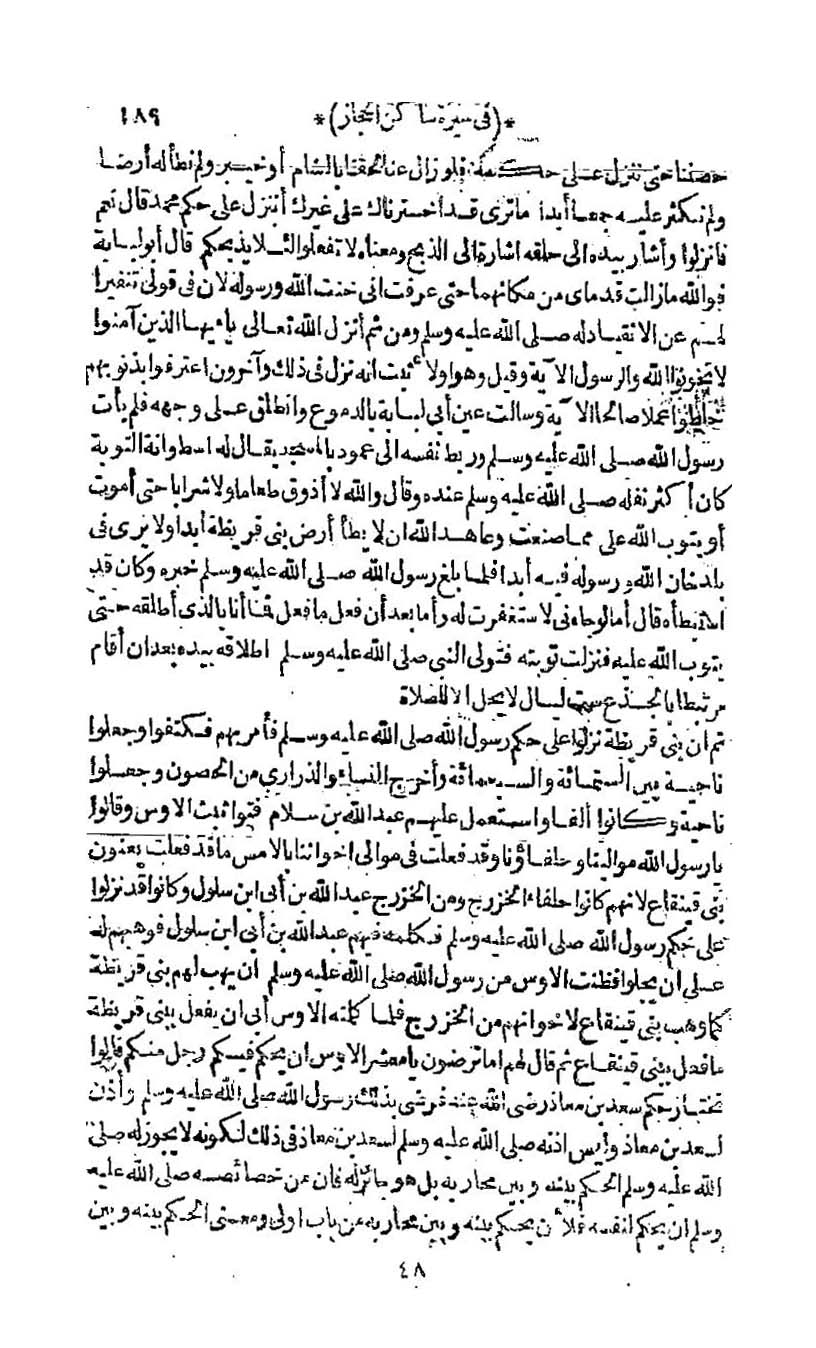 ١٨٩ *(في سيرة ساكن الحجاز)*
حصننا حتى ننزل على حكمه فلو زال عنا لحقنا بالشام أو خيبر ولم نطأ له أرضا
ولم نكثر عليه جمعا أبدا ما ترى قد اخترناك على غيرك أننزل على حكم محمد قال نعم
فانزلوا وأشار بيده الى حلقه اشارة الى الذبح ومعناه لا تفعلوا لئلا يذبحكم قال أبو لبابة
فوالله ما زالت قدماى من مكانهما حتى عرفت انى خنت الله ورسوله لان فى قولى تنفيرا
لهم عن الانقياد له صلى الله عليه وسلم ومن ثم أنزل الله تعالى يا أيها الذين آمنوا
لا تخونوا الله والرسول الآية وقيل وهو أولا أثبت انه نزل فى ذلك وآخرون اعترفوا بذنوبهم
خلطوا عملا صالحا الآية وسالت عين أبى لبابة بالدموع وانطلق على وجهه فلم يأت
رسول الله صلى الله عليه وسلم وربط نفسه الى عمود بالمسجد يقال له اسطوانة التوبة
كان أكثر نفله صلى الله عليه وسلم عنده وقال والله لا أذوق طعاما ولا شرابا حتى أموت
أو يتوب الله على مما صنعت وعاهد الله ان لا يطأ أرض بنى قريظة أبدا ولا يرى فى
بلد خان الله ورسوله فيه أبدا فلما بلغ رسول الله صلى الله عليه وسلم خبره وكان قد
استبطأه قال أما لو جاءنى لاستغفرت له وأما بعد أن فعل ما فعل فما أنا بالذى أطلقه حتى
يتوب الله عليه فنزلت توبته فتولى النبى صلى الله عليه وسلم اطلاقه بيده بعد ان أقام
مرتبطا بالجذع ست ليال لا يحل الا للصلاة
ثم ان بنى قريظة نزلوا على حكم رسول الله صلى الله عليه وسلم فأمر بهم فكتفوا وجعلوا
ناحية بين الستمائة والسبعمائة وأخرج النساء والذرارى من الحصون وجعلوا
ناحية وكانوا ألفا واستعمل عليهم عبد الله بن سلام فتواثبت الاوس وقالوا
يا رسول الله موالينا وحلفاؤنا وقد فعلت فى موالى اخواننا بالامس ما قد فعلت يعنون
بنى قينقاع لانهم كانوا حلفاء الخزرج ومن الخزرج عبد الله بن أبى ابن سلول وكانوا قد نزلوا
على حكم رسول الله صلى الله عليه وسلم فكلمه فيهم عبد الله بن أبى ابن سلول فوهبهم له
على ان يجلوا فظنت الاوس من رسول الله صلى الله عليه وسلم ان يهب لهم بنى قريظة
كما وهب بنى قينقاع لاخوانهم من الخزرج فلما كلمته الاوس أبى ان يفعل ببنى قريظة
ما فعل ببنى قينقاع ثم قال لهم اما ترضون يا معشر الاوس ان يحكم فيكم رجل منكم قالوا
نختار حكم سعد بن معاذ رضى الله عنه فرضى بذلك رسول الله صلى الله عليه وسلم وأذن
لسعد بن معاذ وليس اذنه صلى الله عليه وسلم لسعد بن معاذ فى ذلك لكونه لا يجوز له صلى
الله عليه وسلم الحكم بينه وبين محاربه بل هو جائز له فان من خصائصه صلى الله عليه
وسلم ان يحكم لنفسه فلأن يحكم بينه وبين محاربه من باب اولى ومعنى الحكم بينه وبين
٤٨